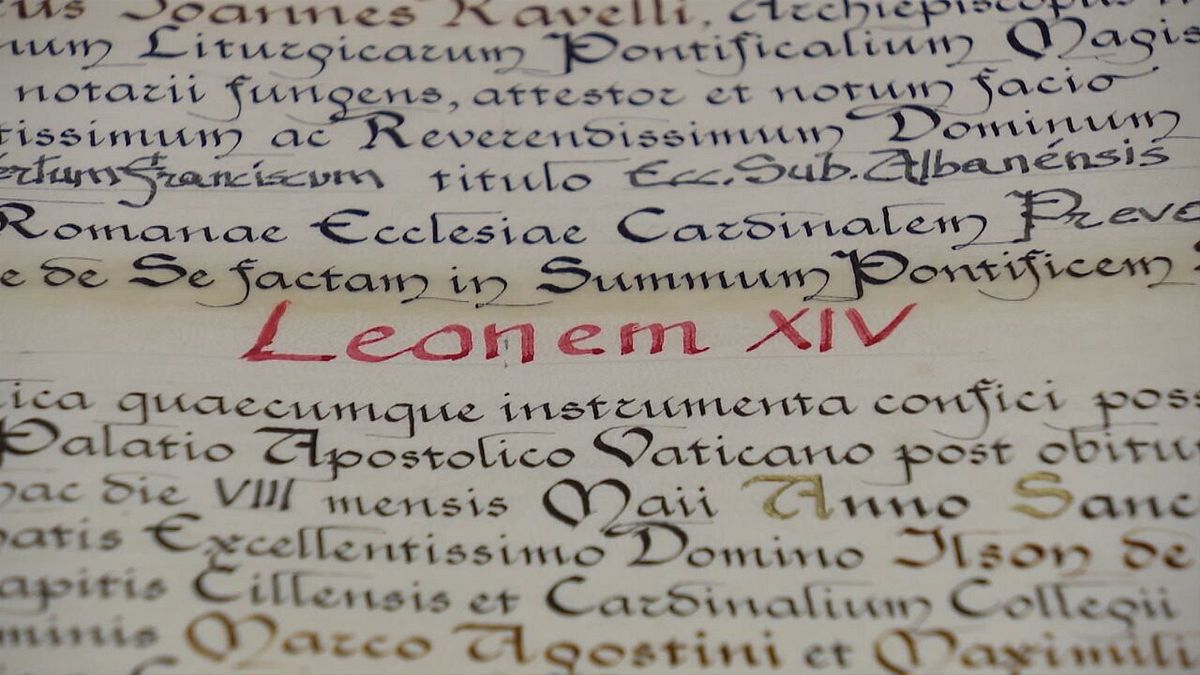 us Joannes Ravelli, Archiepiscopus
num Liturgicarum Pontificalium Magis
notarii fungens, attestor et notum facio
tissimum ac Reverendissimum Dominum
ertum Franciscum titulo Ecc. Sub. Albanénsis
Romanae Ecclesiae Cardinalem Preve
e de Se factam in Summum Pontificem
Leonem XIV
ica quaecumque instrumenta confici poss
Palatio Apostolico Vaticano post obitu
hac die VIII mensis Maii Anno Sanc
patis Excellentissimo Domino Ilson de
apitis Cillensis et Cardinalium Collegii
minis Marco Agostini et Maximili